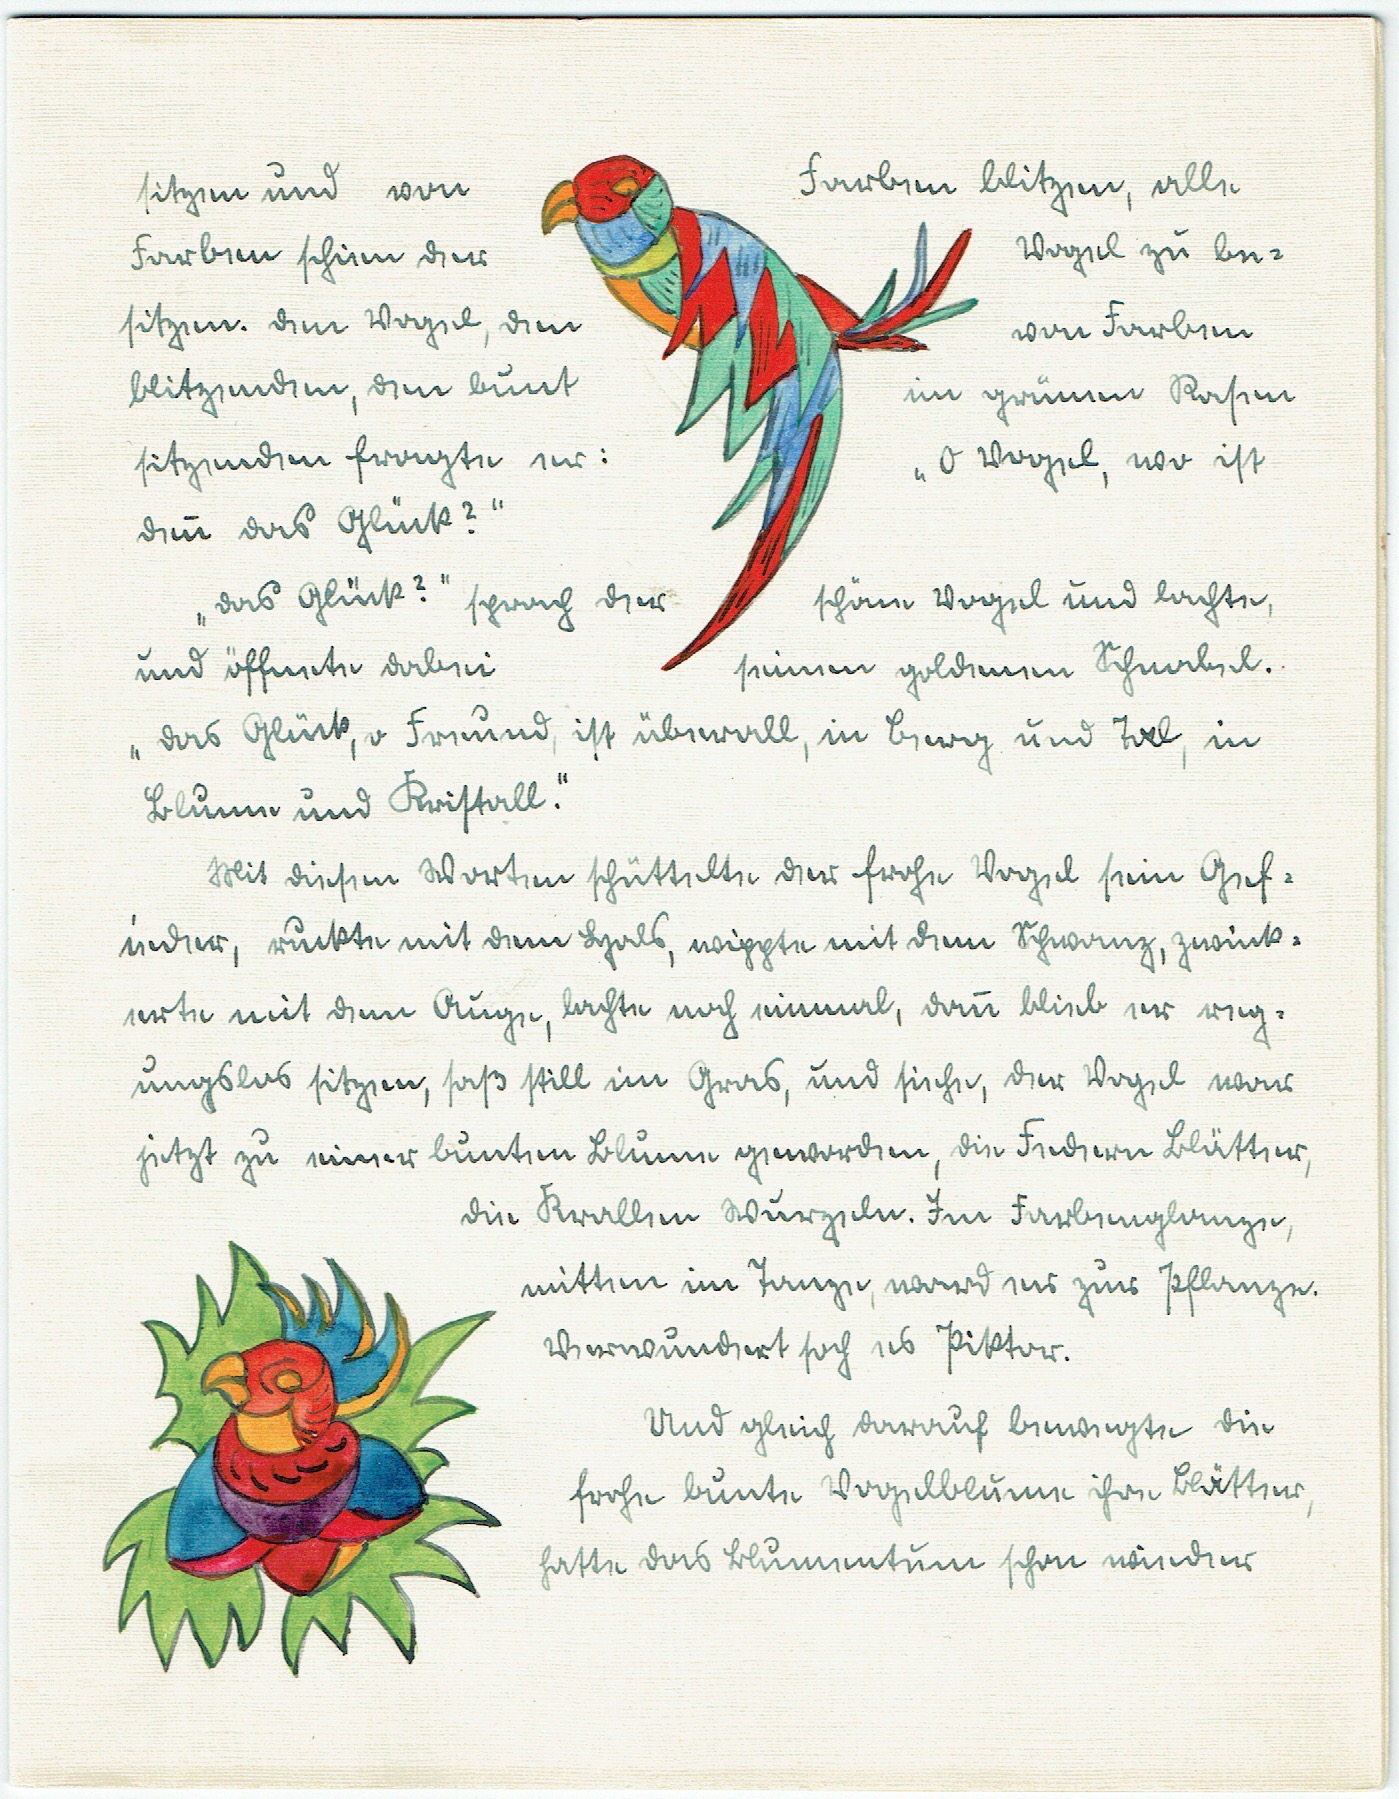 sitzen und von Farben blitzen, alle
Farben schien der Vogel zu be=
sitzen. den Vogel, den von Farben
blitzenden, den bunt im grünen Rasen
sitzenden fragte er: „O Vogel, wo ist
den̄ das Glück?"
„das Glück?" sprach der schöne Vogel und lachte,
und öffnete dabei seinen goldenen Schnabel.
„das Glück, o Freund, ist überall, in Berg und Tal, in
Blume und Kristall."
Mit diesen Worten schüttelte der frohe Vogel sein Gef=
ieder, ruckte mit dem Hals, wippte mit dem Schwanz, zwink=
erte mit dem Auge, lachte noch einmal, dan̄ blieb er reg=
ungslos sitzen, saß still im Gras, und siehe, der Vogel war
jetzt zu einer bunten Blume geworden, die Federn Blätter,
die Krallen Wurzeln. Im Farbenglanze,
mitten im Tanze, ward er zur Pflanze.
Verwundert sah es Piktor.
Und gleich darauf bewegte die
frohe bunte Vogelblume ihre Blätter,
hatte das Blumentum schon wieder